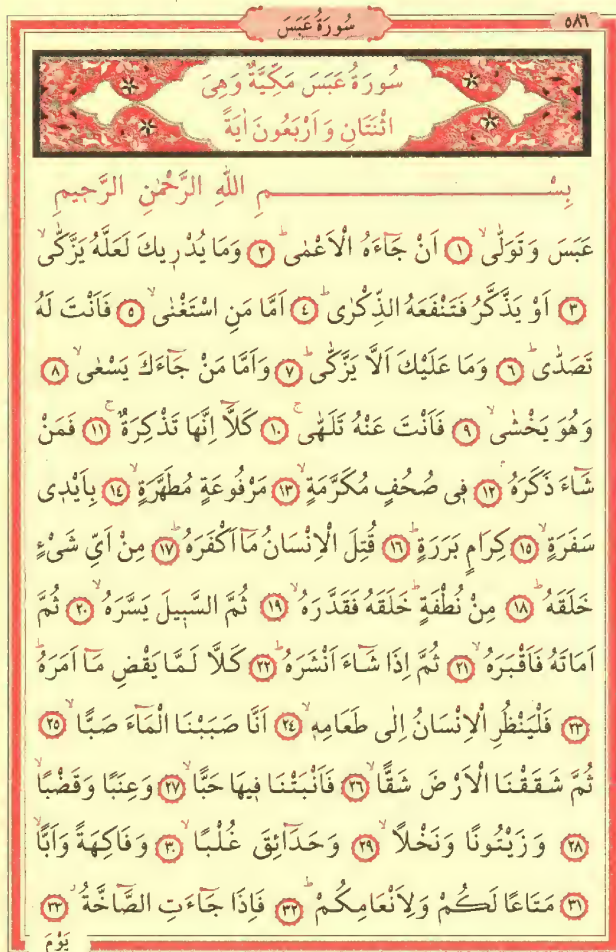 سُورَةُ عَبَسَ
٥٨٦
سُورَةُ عَبَسَ مَكِّيَّةٌ وَهِيَ
اثْنَتَانِ وَاَرْبَعُونَ اٰيَةً
بِسْمِ اللّٰهِ الرَّحْمٰنِ الرَّحِيمِ
عَبَسَ وَتَوَلّٰىۙ ﴿١﴾ اَنْ جَٓاءَهُ الْاَعْمٰىۜ ﴿٢﴾ وَمَا يُدْرِيكَ لَعَلَّهُ يَزَّكّٰىۙ
﴿٣﴾ اَوْ يَذَّكَّرُ فَتَنْفَعَهُ الذِّكْرٰىۜ ﴿٤﴾ اَمَّا مَنِ اسْتَغْنٰىۙ ﴿٥﴾ فَاَنْتَ لَهُ
تَصَدّٰىۜ ﴿٦﴾ وَمَا عَلَيْكَ اَلَّا يَزَّكّٰىۜ ﴿٧﴾ وَاَمَّا مَنْ جَٓاءَكَ يَسْعٰىۙ ﴿٨﴾
وَهُوَ يَخْشٰىۙ ﴿٩﴾ فَاَنْتَ عَنْهُ تَلَهّٰىۚ ﴿١٠﴾ كَلَّٓا اِنَّهَا تَذْكِرَةٌۚ ﴿١١﴾ فَمَنْ
شَٓاءَ ذَكَرَهُۢ ﴿١٢﴾ فِى صُحُفٍ مُكَرَّمَةٍۙ ﴿١٣﴾ مَرْفُوعَةٍ مُطَهَّرَةٍۙ ﴿١٤﴾ بِاَيْدِى
سَفَرَةٍۙ ﴿١٥﴾ كِرَامٍ بَرَرَةٍۜ ﴿١٦﴾ قُتِلَ الْاِنْسَانُ مَٓا اَكْفَرَهُۜ ﴿١٧﴾ مِنْ اَىِّ شَىْءٍ
خَلَقَهُۜ ﴿١٨﴾ مِنْ نُطْفَةٍۜ خَلَقَهُ فَقَدَّرَهُۙ ﴿١٩﴾ ثُمَّ السَّبِيلَ يَسَّرَهُۙ ﴿٢٠﴾ ثُمَّ
اَمَاتَهُ فَاَقْبَرَهُۙ ﴿٢١﴾ ثُمَّ اِذَا شَٓاءَ اَنْشَرَهُۜ ﴿٢٢﴾ كَلَّا لَمَّا يَقْضِ مَٓا اَمَرَهُۜ
﴿٢٣﴾ فَلْيَنْظُرِ الْاِنْسَانُ اِلٰى طَعَامِهِۙ ﴿٢٤﴾ اَنَّا صَبَبْنَا الْمَٓاءَ صَبًّاۙ ﴿٢٥﴾
ثُمَّ شَقَقْنَا الْاَرْضَ شَقًّاۙ ﴿٢٦﴾ فَاَنْبَتْنَا فِيهَا حَبًّاۙ ﴿٢٧﴾ وَعِنَبًا وَقَضْبًاۙ
﴿٢٨﴾ وَزَيْتُونًا وَنَخْلًاۙ ﴿٢٩﴾ وَحَدَٓائِقَ غُلْبًاۙ ﴿٣٠﴾ وَفَاكِهَةً وَاَبًّاۙ
﴿٣١﴾ مَتَاعًا لَكُمْ وَلِاَنْعَامِكُمْۜ ﴿٣٢﴾ فَاِذَا جَٓاءَتِ الصَّٓاخَّةُۘ ﴿٣٣﴾
يَوْمَ